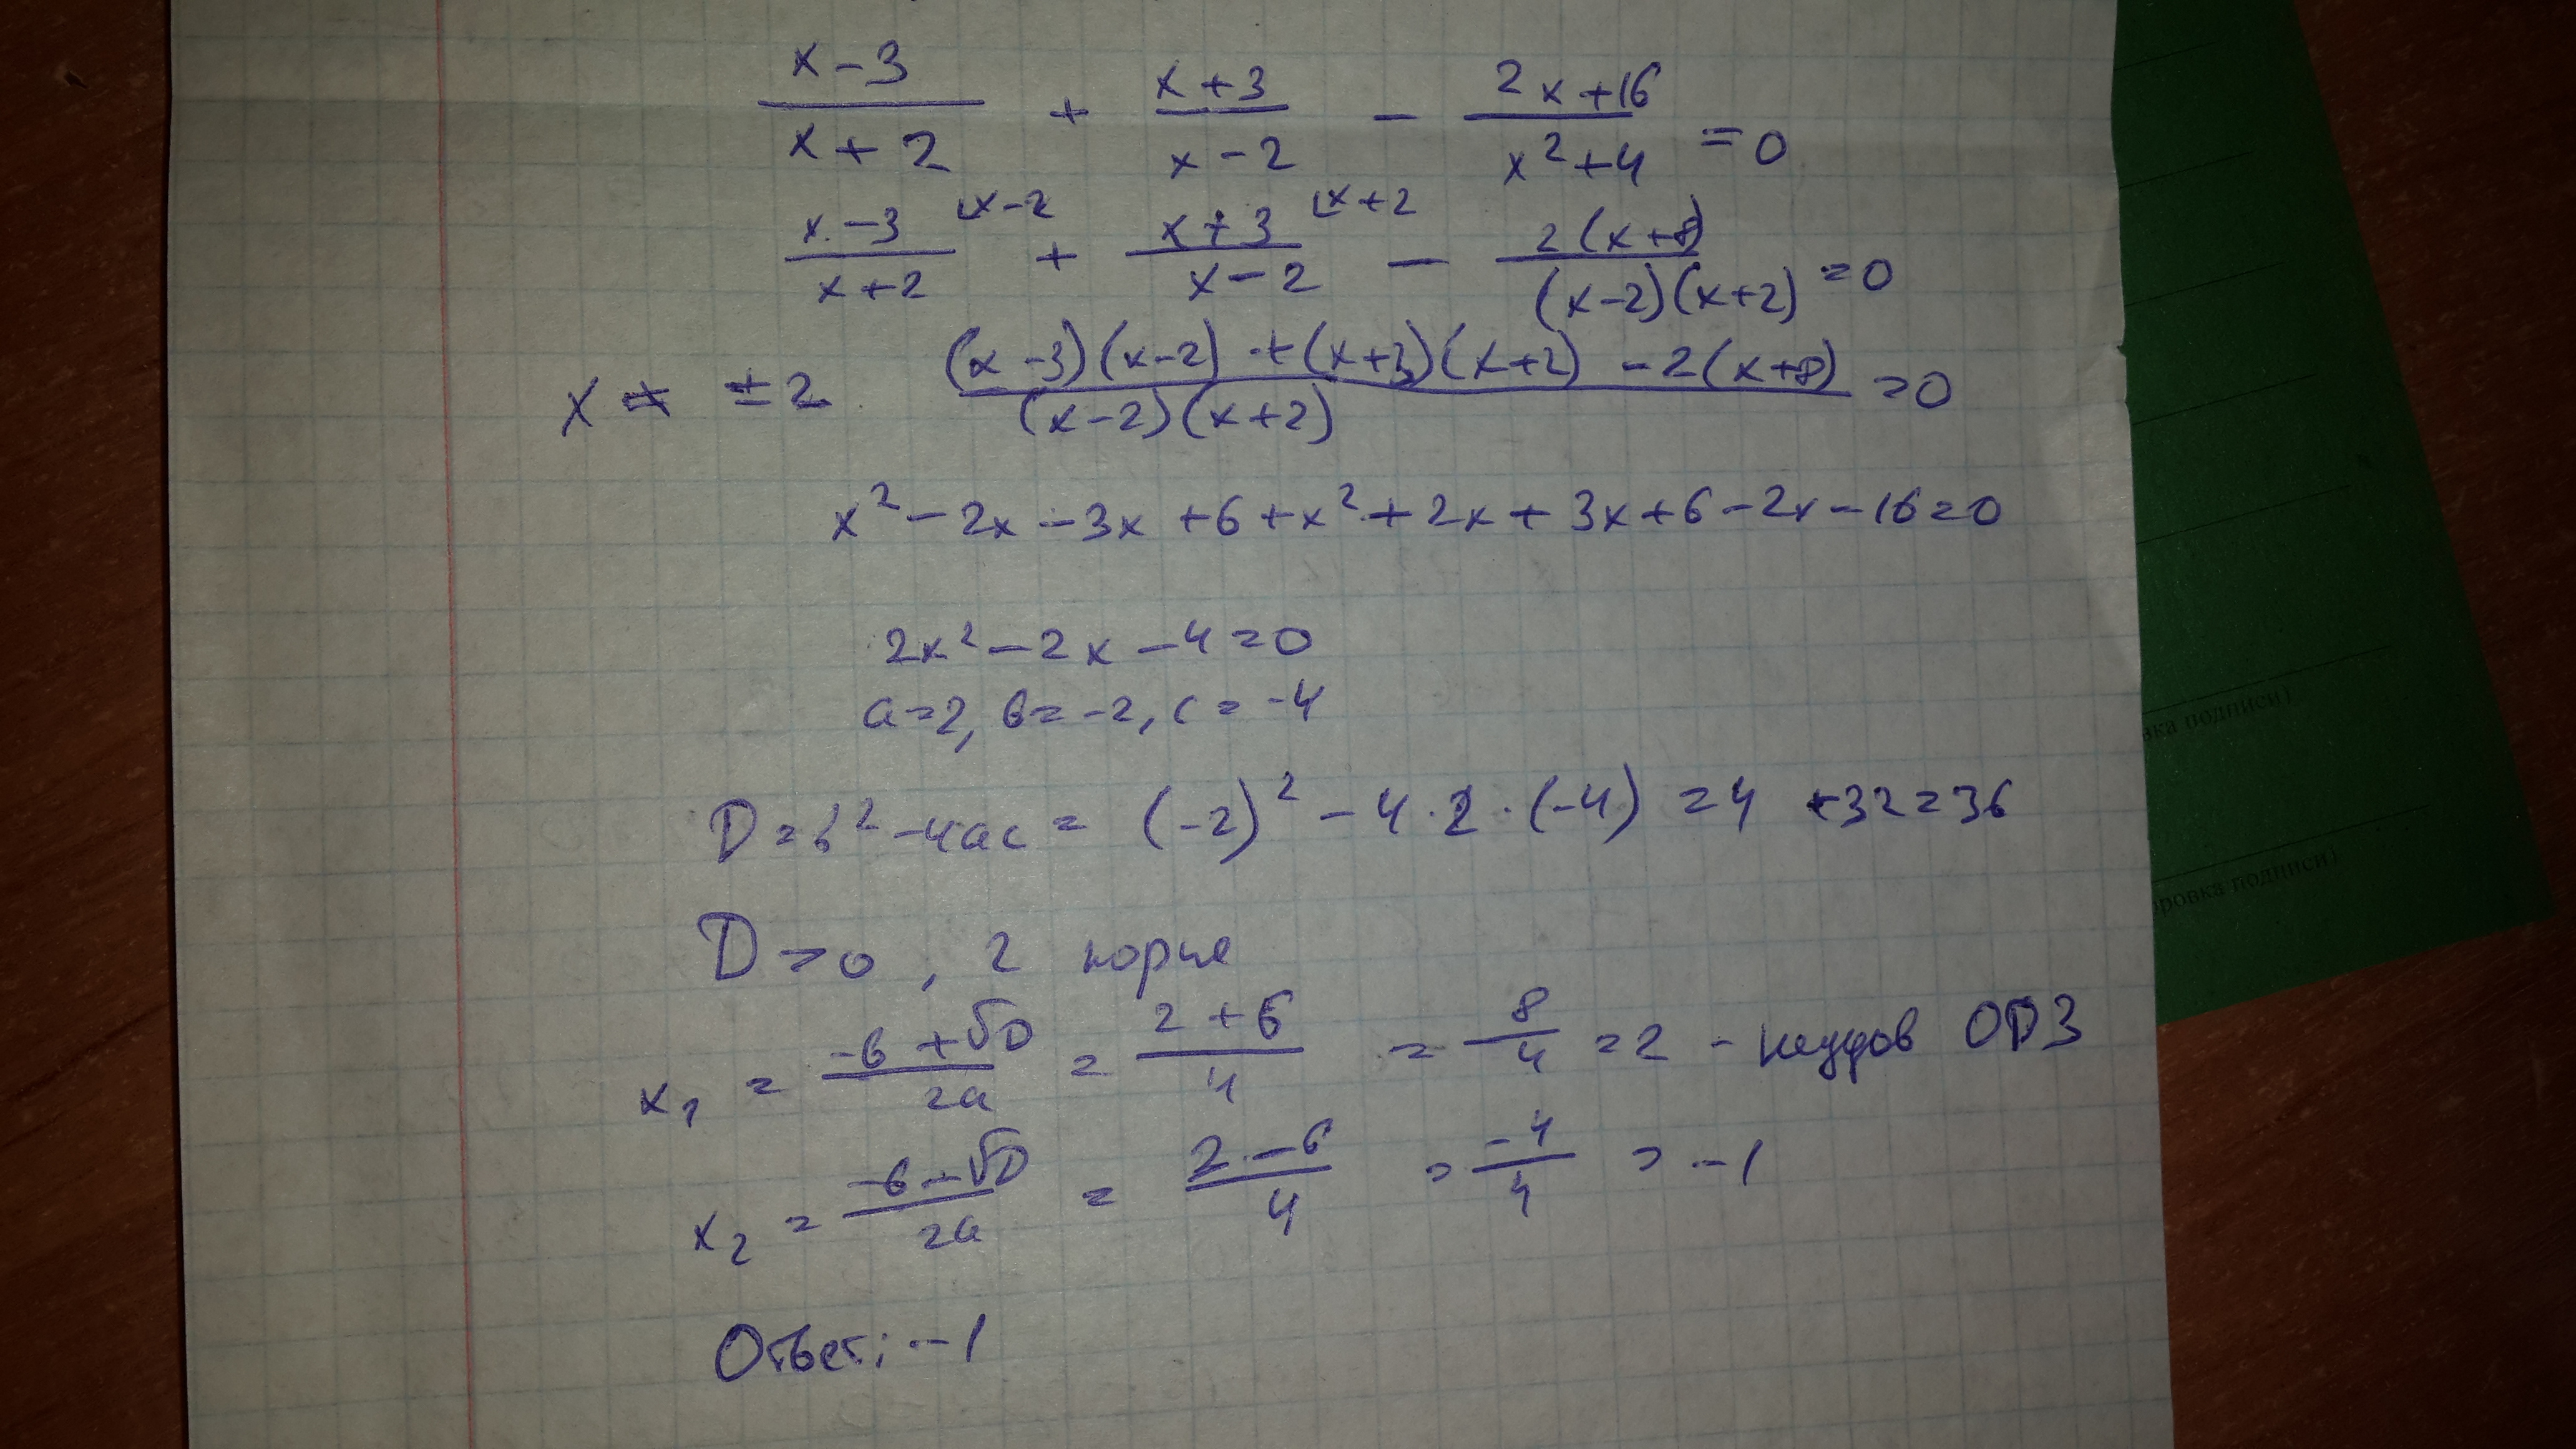 x-3/x+2 + x+3/x-2 - 2x+16/x²+4 = 0
x-3/x+2 ⌊x-2 + x+3/x-2 ⌊x+2 - 2(x+8)/(x-2)(x+2) = 0
x ≠ ±2 (x-3)(x-2)+(x+3)(x+2)-2(x+8)/(x-2)(x+2) = 0
x²-2x-3x+6+x²+2x+3x+6-2x-16=0
2x²-2x-4=0
a=2, в=-2, c=-4
D=в²-4ac=(-2)²-4·2·(-4)=4+32=36
D>0, 2 корня
x₁ = -в+√D/2a = 2+6/4 = 8/4 = 2 - неудов ОДЗ
x₂ = -в-√D/2a = 2-6/4 = -4/4 = -1
Ответ: -1
вка подписи)
ровка подписи)